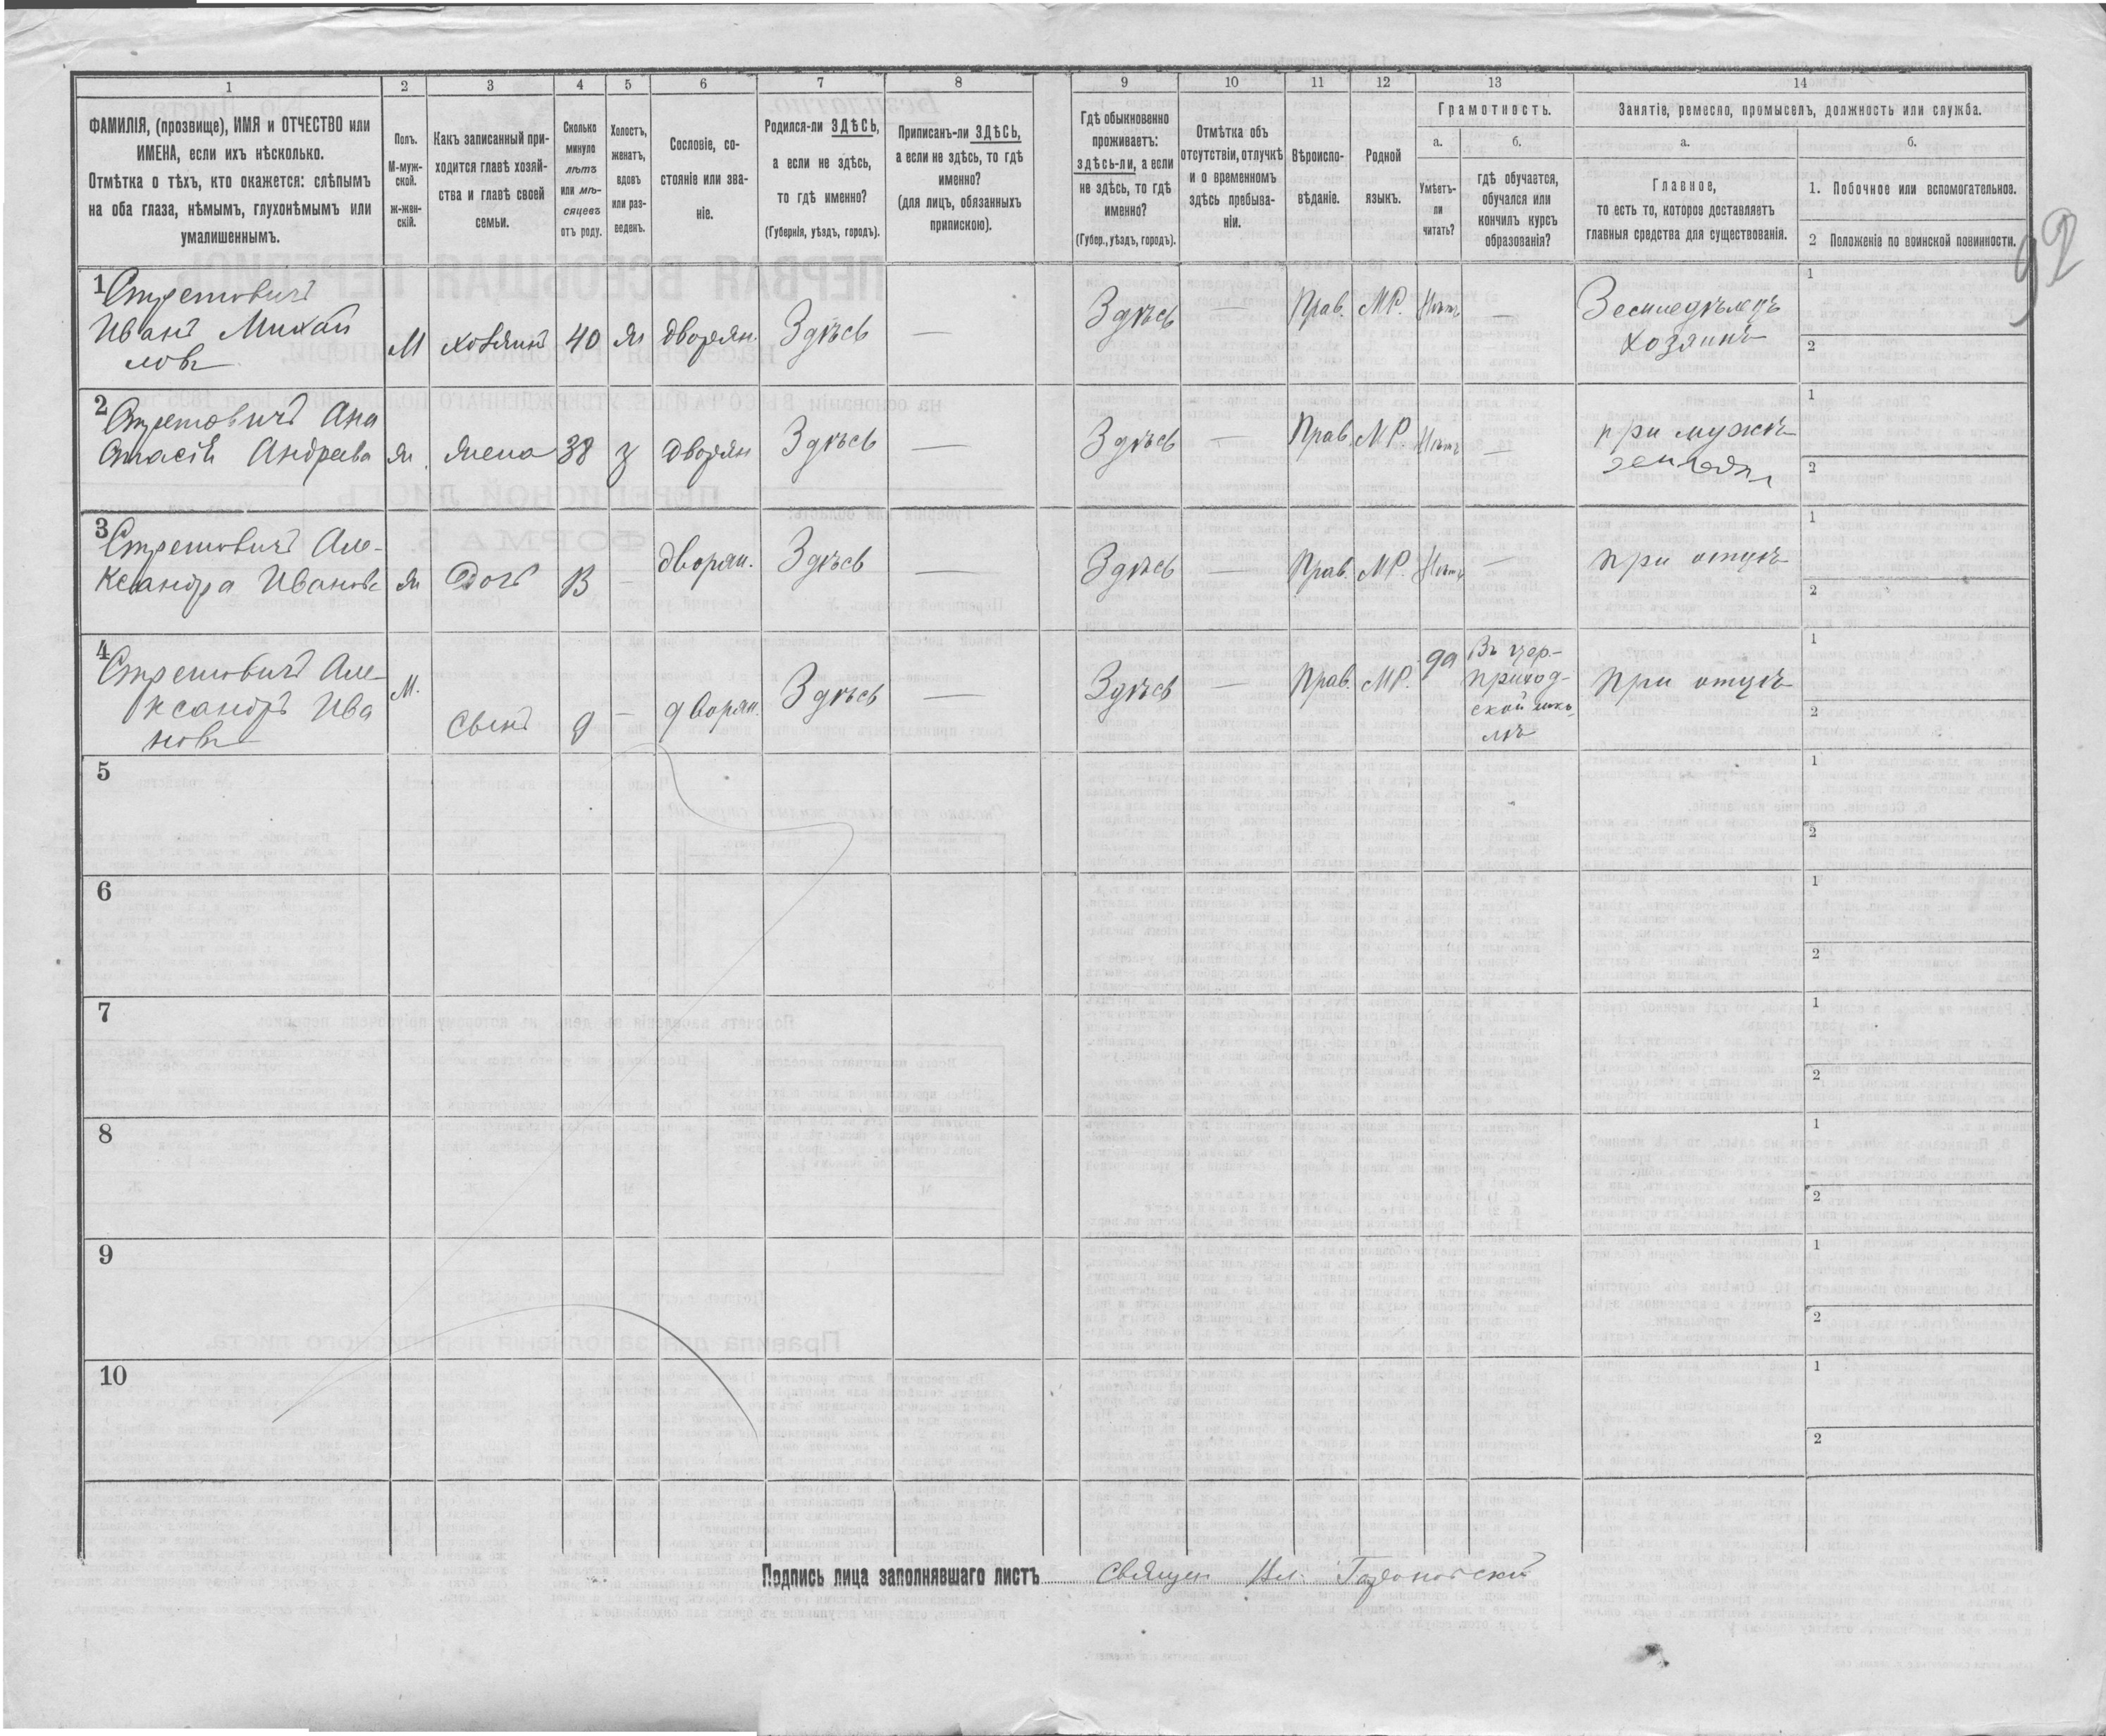 1 2 3 4 5 6 7 8 9 10 11 12 13 14
ФАМИЛІЯ, (прозвище), ИМЯ и ОТЧЕСТВО или
ИМЕНА, если ихъ нѣсколько.
Отмѣтка о тѣхъ, кто окажется: слѣпымъ
на оба глаза, нѣмымъ, глухонѣмымъ или
умалишеннымъ.
Полъ.
М-муж-
ской.
ж-жен-
скій.
Какъ записанный при-
ходится главѣ хозяй-
ства и главѣ своей
семьи.
Сколько
минуло
лѣтъ
или мѣ-
сяцевъ
отъ роду.
Холостъ,
женатъ,
вдовъ
или раз-
веденъ.
Сословіе, со-
стояніе или зва-
ніе.
Родился-ли ЗДѢСЬ,
а если не здѣсь,
то гдѣ именно?
(Губернія, уѣздъ, городъ).
Приписанъ-ли ЗДѢСЬ,
а если не здѣсь, то гдѣ
именно?
(для лицъ, обязанныхъ
припискою).
Гдѣ обыкновенно
проживаетъ:
здѣсь-ли, а если
не здѣсь, то гдѣ
именно?
(Губер., уѣздъ, городъ).
Отмѣтка объ
отсутствіи, отлучкѣ
и о временномъ
здѣсь пребыва-
ніи.
Вѣроиспо-
вѣданіе.
Родной
языкъ.
Грамотность.
а.
Умѣетъ-
ли
читать?
б.
гдѣ обучается,
обучался или
кончилъ курсъ
образованія?
Занятіе, ремесло, промыселъ, должность или служба.
а.
Главное,
то есть то, которое доставляетъ
главныя средства для существованія.
б.
1. Побочное или вспомогательное.
2 Положеніе по воинской повинности.
92
1
Стретовичъ
Иванъ Михай
ловъ
М хозяинъ 40 ж дворян. Здѣсь — Здѣсь — Прав. МР. Нѣтъ —
Земледѣлецъ
хозяинъ
1
2
2
Стретовичъ Ана
стасія Андреева
ж. жена 38 з дворян Здѣсь — Здѣсь — Прав. МР. Нѣтъ —
при мужѣ
1
2
3
Стретовичъ Але-
ксандра Иванова
ж Дочь 13 — дворян. Здѣсь — Здѣсь — Прав. МР. Нѣтъ —
при отцѣ
1
2
4
Стретовичъ Але-
ксандръ Ива
новъ
М. Сынъ 9 — дворян. Здѣсь — Здѣсь — Прав. МР. да
Въ цер-
приход-
ской шко
лѣ
При отцѣ
1
2
5
1
2
6
1
2
7
1
2
8
1
2
9
1
2
10
1
2
Подпись лица заполнявшаго листъ Священ Ил.